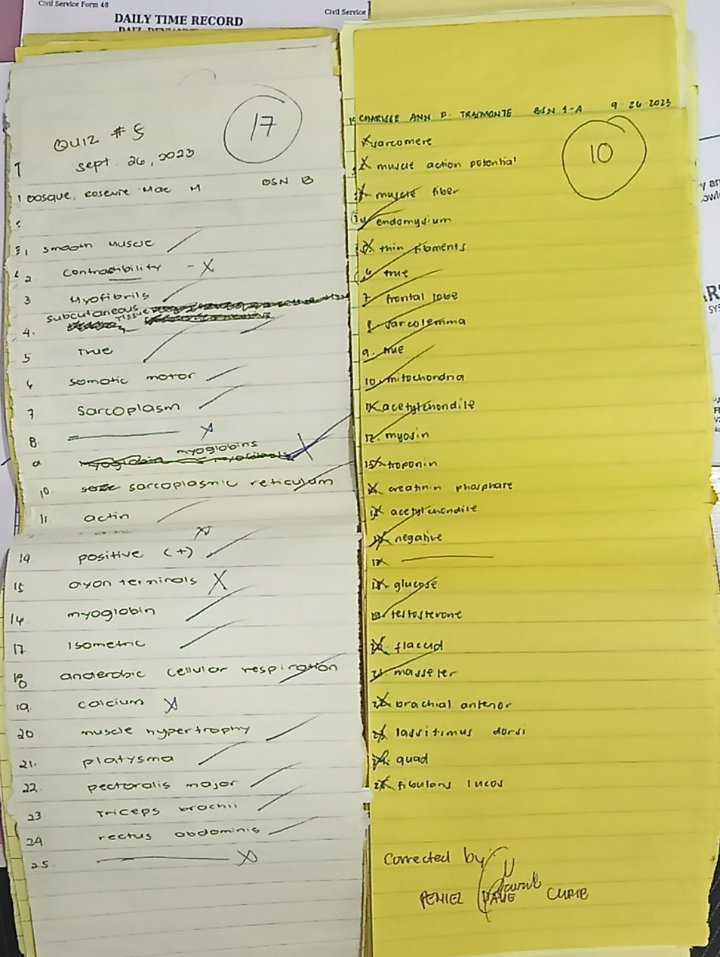 Civil Service Form 48
DAILY TIME RECORD
Civil Service
QUIZ # 5
17
Sept. 26, 2023
BSN 1B
1 smooth muscle
2 contractibility - X
3 Myofibrils
4. subcutaneous tissue
5 True
6 somatic motor
7 Sarcoplasm
8
9 myoglobins
10 sarcoplasmic reticulum
11 actin
14 positive (+)
15 axon terminals X
16 myoglobin
17 Isometric
18 anaerobic cellular respiration
19 calcium X
20 muscle hypertrophy
21. platysma
22. pectoralis major
23 Triceps brachii
24 rectus abdominis
25 X
CHARISSE ANN P. TRASMONTE BSN 1-A 9-26-2023
10
sarcomere
muscle action potential
muscle fiber
4 endomysium
5 thin filaments
6 true
7 frontal lobe
8 sarcolemma
9. true
10. mitochondria
11 acetylchondile
12. myosin
13 troponin
creatinin phosphate
15 acetylchondile
16 negative
17
18 glucose
19 testosterone
20 flaccid
21 masseter
22 brachial anterior
23 lassitimus dorsi
24 quad
25 fibulans lucas
Corrected by:
PENIEL DAVE